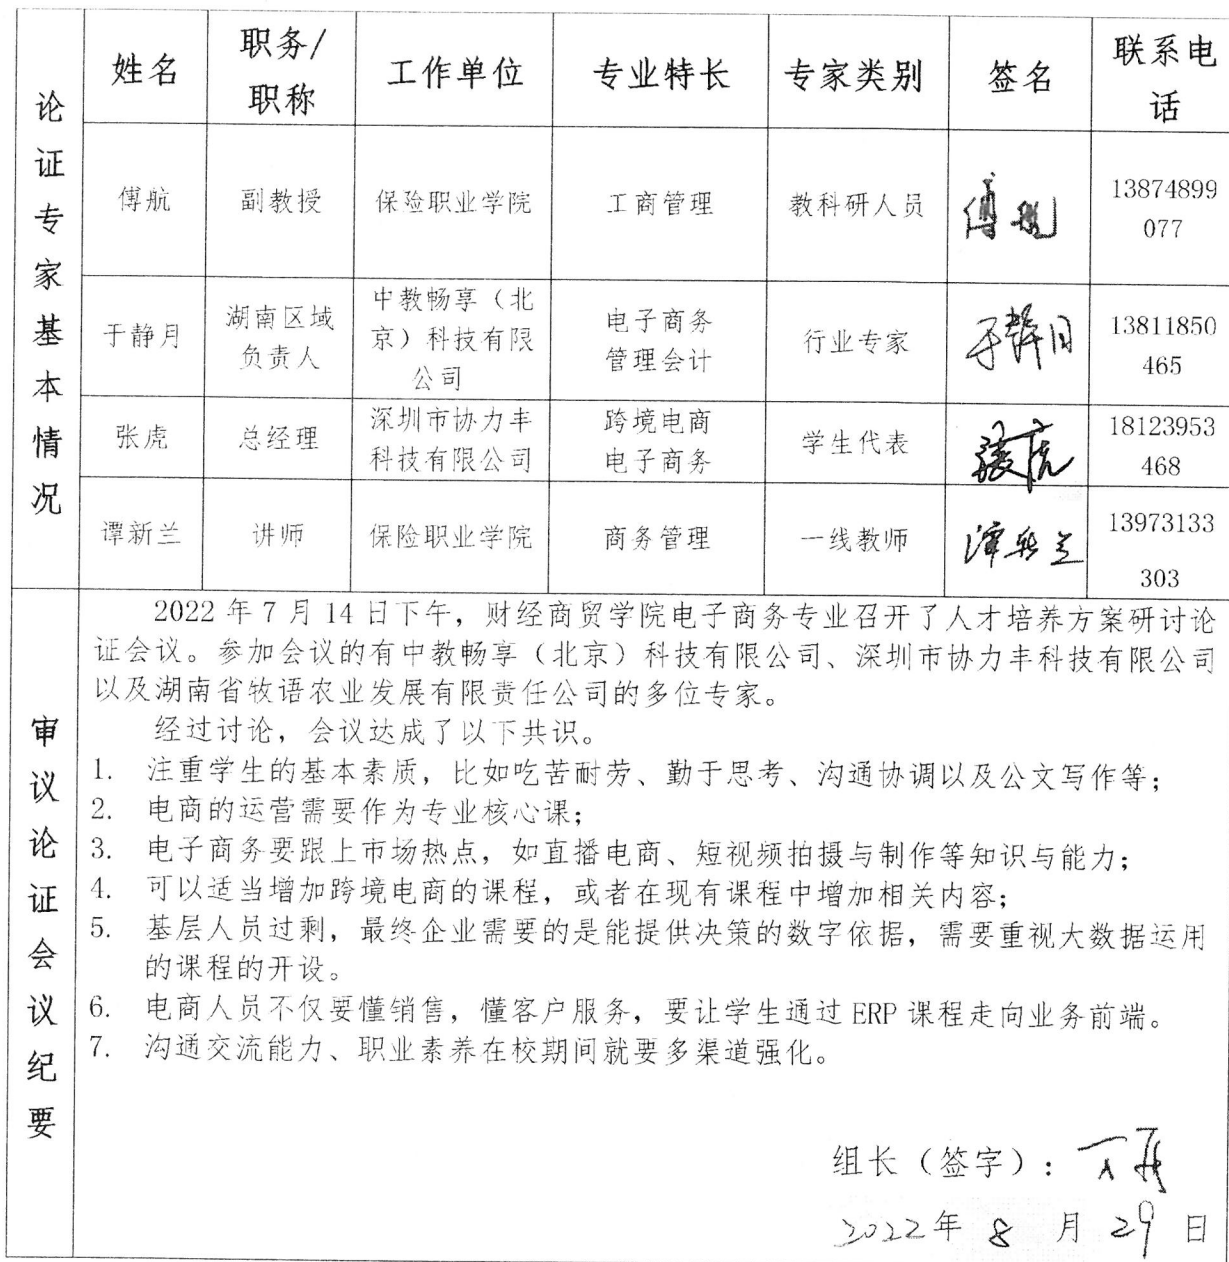 论证专家基本情况
姓名
职务/
职称
工作单位
专业特长
专家类别
签名
联系电
话
傅航
副教授
保险职业学院
工商管理
教科研人员
傅航
13874899
077
于静月
湖南区域
负责人
中教畅享（北
京）科技有限
公司
电子商务
管理会计
行业专家
于静月
13811850
465
张虎
总经理
深圳市协力丰
科技有限公司
跨境电商
电子商务
学生代表
张虎
18123953
468
谭新兰
讲师
保险职业学院
商务管理
一线教师
谭新兰
13973133
303
审议论证会议纪要
2022 年 7 月 14 日下午，财经商贸学院电子商务专业召开了人才培养方案研讨论
证会议。参加会议的有中教畅享（北京）科技有限公司、深圳市协力丰科技有限公司
以及湖南省牧语农业发展有限责任公司的多位专家。
经过讨论，会议达成了以下共识。
1. 注重学生的基本素质，比如吃苦耐劳、勤于思考、沟通协调以及公文写作等；
2. 电商的运营需要作为专业核心课；
3. 电子商务要跟上市场热点，如直播电商、短视频拍摄与制作等知识与能力；
4. 可以适当增加跨境电商的课程，或者在现有课程中增加相关内容；
5. 基层人员过剩，最终企业需要的是能提供决策的数字依据，需要重视大数据运用
的课程的开设。
6. 电商人员不仅要懂销售，懂客户服务，要让学生通过 ERP 课程走向业务前端。
7. 沟通交流能力、职业素养在校期间就要多渠道强化。
组长（签字）：
2022年 8 月 29 日